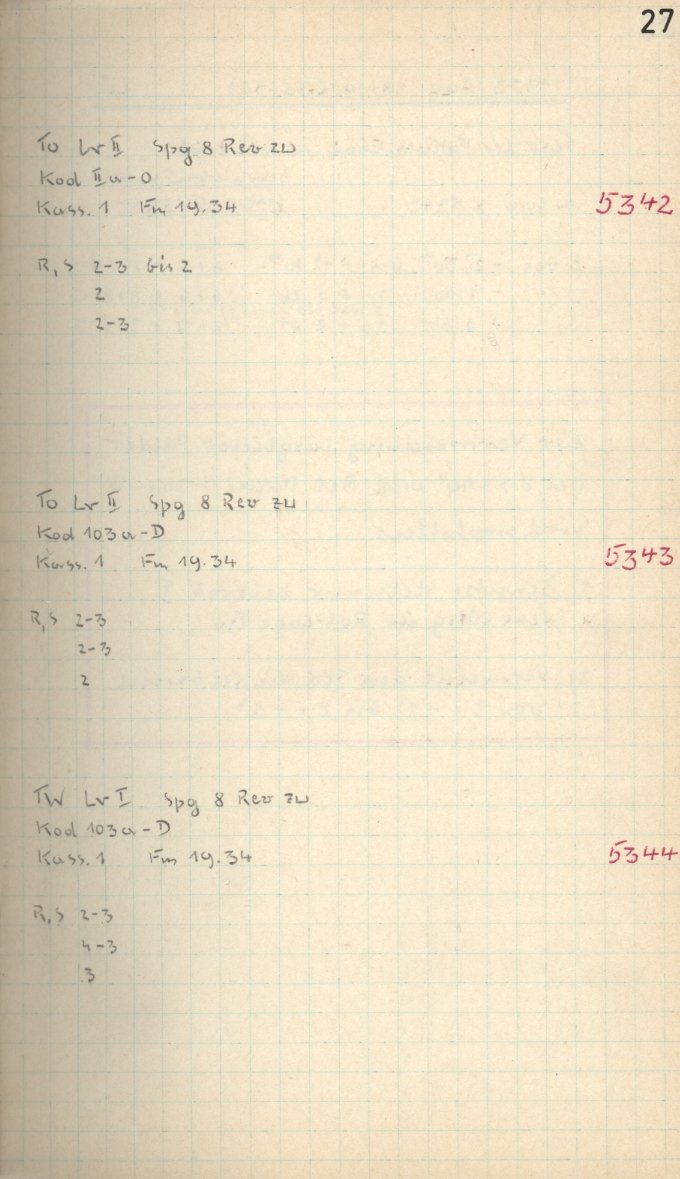 27
To Lv II Spg 8 Rev zu
Kod IIa-O
Kass. 1 Fm 19.34 5342
R,S 2-3 bis 2
2
2-3
To Lv II Spg 8 Rev zu
Kod 103a-D
Kass. 1 Fm 19.34 5343
R,S 2-3
2-3
2
TW Lv I Spg 8 Rev zu
Kod 103a-D
Kass. 1 Fm 19.34 5344
R,S 2-3
4-3
3